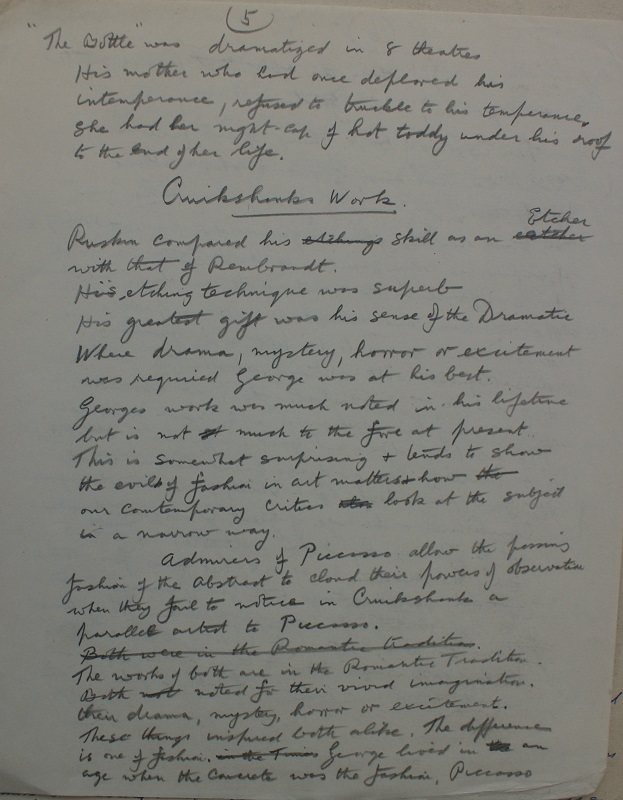 5
"The Bottle" was dramatized in 8 theatres
His mother who had once deplored his
intemperance, refused to truckle to his temperance,
She had her night-cap of hot toddy under his roof
to the end of her life.
Cruikshanks Work.
Etcher
Ruskin compared his etchings skill as an
with that of Rembrandt.
His etching technique was superb
His greatest gift was his sense of the Dramatic
Where drama, mystery, horror or excitement
was required George was at his best.
Georges work was much noted in his lifetime
but is not much to the fore at present.
This is somewhat surprising + tends to show
the evils of fashion in art matters + how the
our contemporary critics look at the subject
in a narrow way.
Admirers of Piccasso allow the passing
fashion of the Abstract to cloud their powers of observation
when they fail to notice in Cruikshank a
parallel artist to Piccasso.
Both were in the Romantic tradition.
The works of both are in the Romantic Tradition.
Both not noted for their vivid imagination.
their drama, mystery, horror or excitement.
These things inspired both alike. The difference
is one of fashion. in the Times George lived in an
age when the concrete was the fashion, Piccasso